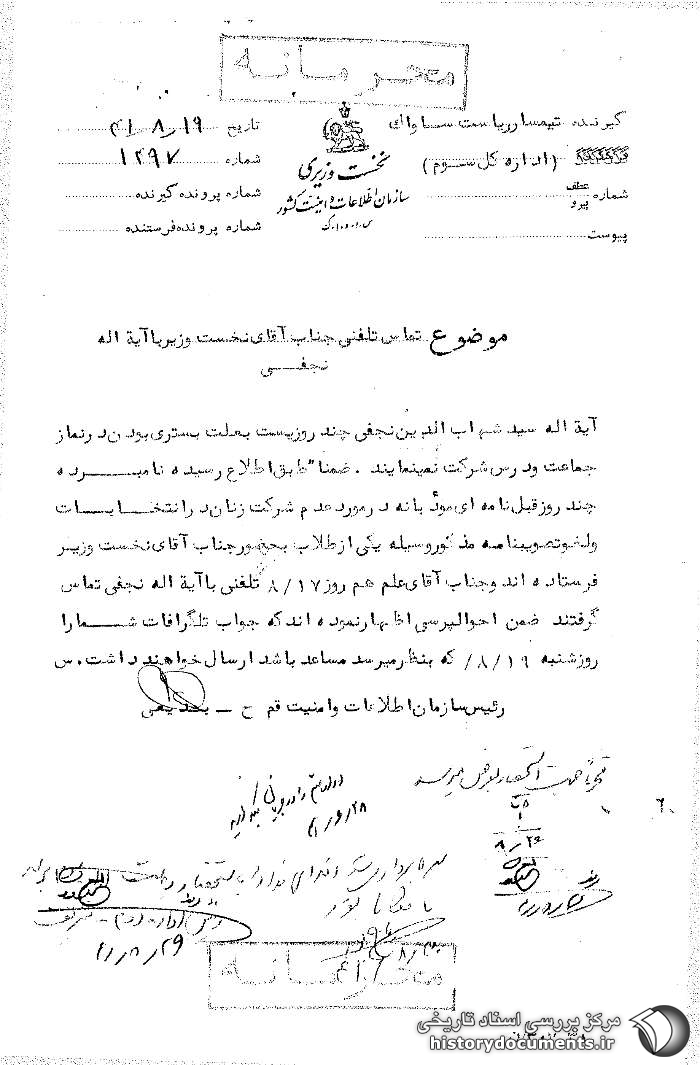 محرمانه
گیرنده تیمسار ریاست ساواک
(اداره کل سوم)
شماره عطف پیرو
پیوست
نخست وزیری
سازمان اطلاعات و امنیت کشور
س.ا.و.ا.ک
تاریخ ۴۱/۸/۱۹
شماره ۱۲۹۷
شماره پرونده گیرنده
شماره پرونده فرستنده
موضوع تماس تلفنی جناب آقای نخست وزیر با آیة اله
نجفی
آیة اله سید شهاب الدین نجفی چند روزیست بعلت بستری بودن در نماز
جماعت و درس شرکت نمینمایند . ضمنا" طبق اطلاع رسیده نامبرده
چند روز قبل نامه ای مودبانه در مورد عدم شرکت زنان در انتخابات
و لغو تصویبنامه مذکور وسیله یکی از طلاب بحضور جناب آقای نخست وزیر
فرستاده اند و جناب آقای علم هم روز ۸/۱۷ تلفنی با آیة اله نجفی تماس
گرفتند ضمن احوالپرسی اظهار نموده اند که جواب تلگرافات شما را
روز شنبه ۸/۱۹ که بنظر میرسد مساعد باشد ارسال خواهند داشت . س
رئیس سازمان اطلاعات و امنیت قم ح – بدیعی
جهت استحضار بعرض میرسد
۸/۲۶
بهره برداری
۴۱/۸/۲۹
محرمانه
مرکز بررسی اسناد تاریخی
historydocuments.ir